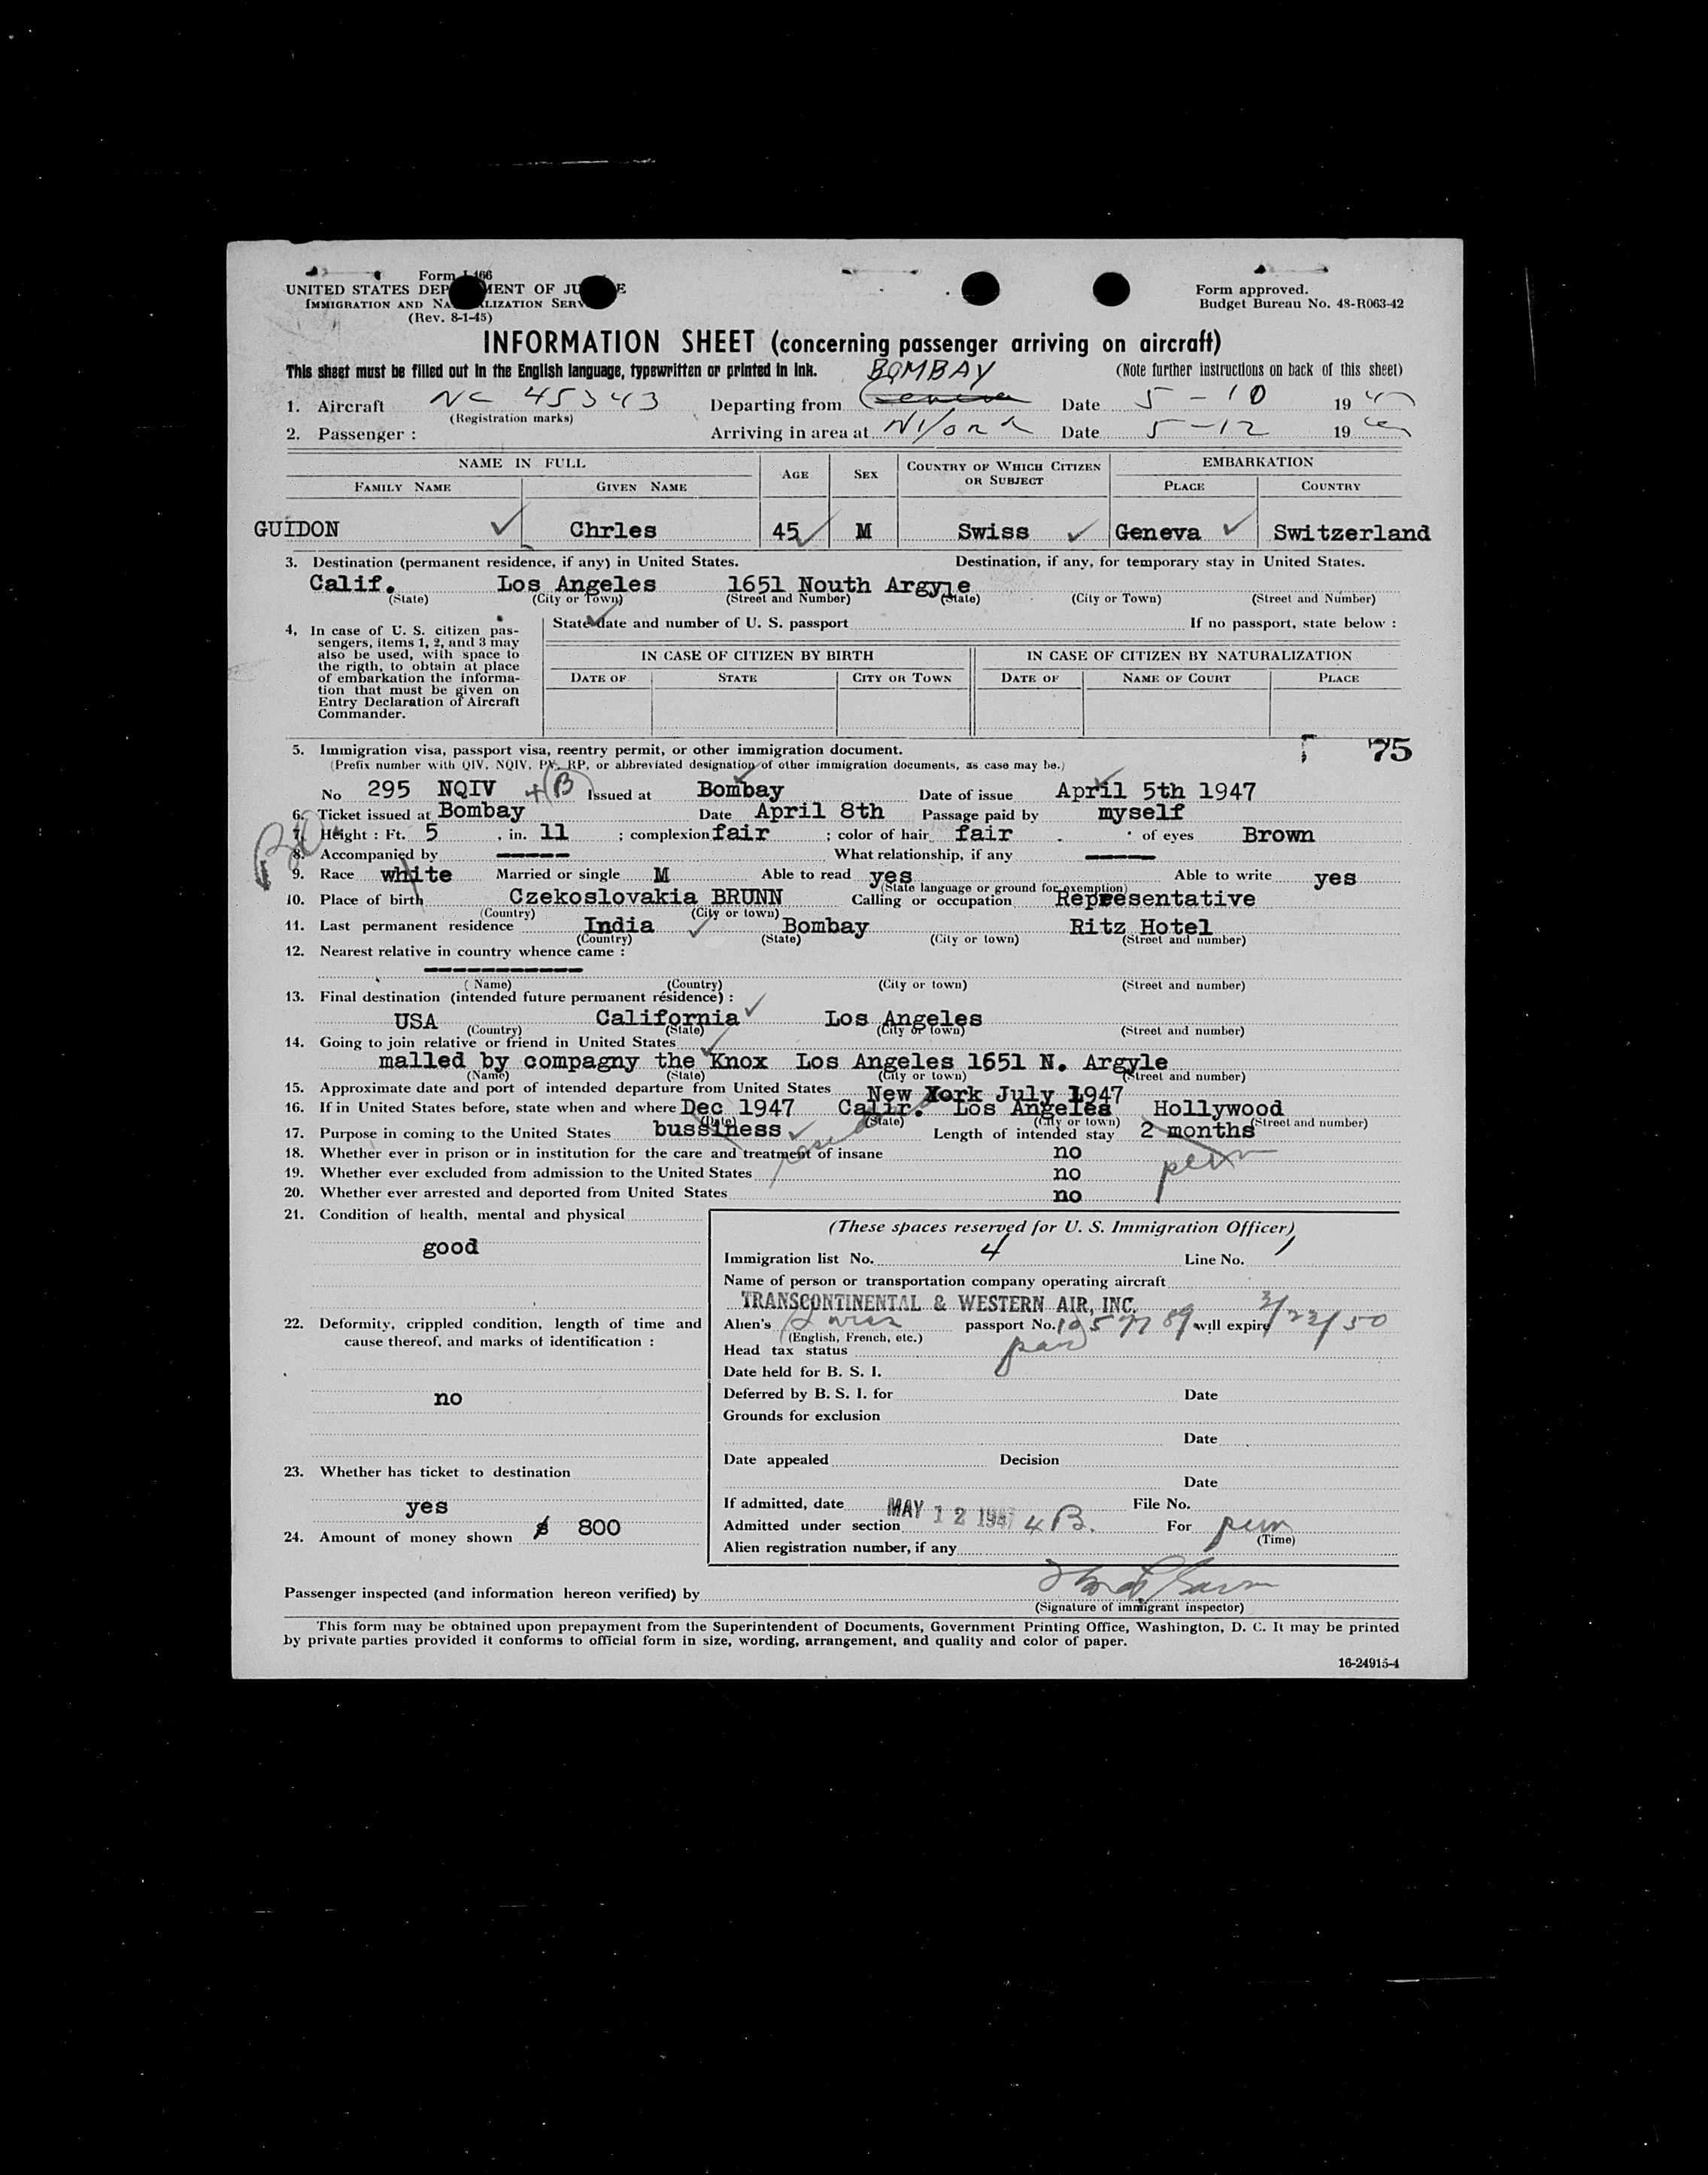 Form I-466
UNITED STATES DEP MENT OF JU E
IMMIGRATION AND NA LIZATION SERV
(Rev. 8-1-45)
Form approved.
Budget Bureau No. 48-R063-42
INFORMATION SHEET (concerning passenger arriving on aircraft)
This sheet must be filled out in the English language, typewritten or printed in ink. BOMBAY (Note further instructions on back of this sheet)
1. Aircraft NC 45343 Departing from Geneva Date 5-10 1947
(Registration marks)
2. Passenger : Arriving in area at Date 5-12 19
NAME IN FULL AGE SEX COUNTRY OF WHICH CITIZEN OR SUBJECT EMBARKATION
FAMILY NAME GIVEN NAME PLACE COUNTRY
GUIDON Chrles 45 M Swiss Geneva Switzerland
3. Destination (permanent residence, if any) in United States. Destination, if any, for temporary stay in United States.
Calif. Los Angeles 1651 Nouth Argyle
(State) (City or Town) (Street and Number) (State) (City or Town) (Street and Number)
4. In case of U. S. citizen pas-
sengers, items 1, 2, and 3 may
also be used, with space to
the rigth, to obtain at place
of embarkation the informa-
tion that must be given on
Entry Declaration of Aircraft
Commander.
State date and number of U. S. passport If no passport, state below :
IN CASE OF CITIZEN BY BIRTH IN CASE OF CITIZEN BY NATURALIZATION
DATE OF STATE CITY OR TOWN DATE OF NAME OF COURT PLACE
5. Immigration visa, passport visa, reentry permit, or other immigration document. 75
(Prefix number with QIV, NQIV, PV, RP, or abbreviated designation of other immigration documents, as case may be.)
No 295 NQIV 4(B) Issued at Bombay Date of issue April 5th 1947
6. Ticket issued at Bombay Date April 8th Passage paid by myself
7. Height : Ft. 5 , in. 11 ; complexion fair ; color of hair fair of eyes Brown
8. Accompanied by ----- What relationship, if any -----
9. Race white Married or single M Able to read yes Able to write yes
(State language or ground for exemption)
10. Place of birth Czekoslovakia BRUNN Calling or occupation Representative
(Country) (City or town)
11. Last permanent residence India Bombay Ritz Hotel
(Country) (State) (City or town) (Street and number)
12. Nearest relative in country whence came :
-----------
(Name) (Country) (City or town) (Street and number)
13. Final destination (intended future permanent résidence) :
USA California Los Angeles
(Country) (State) (City or town) (Street and number)
14. Going to join relative or friend in United States
malled by compagny the Knox Los Angeles 1651 N. Argyle
(Name) (State) (City or town) (Street and number)
15. Approximate date and port of intended departure from United States New York July 1947
16. If in United States before, state when and where Dec 1947 Calir. Los Angeles Hollywood
(Date) (State) (City or town) (Street and number)
17. Purpose in coming to the United States bussiness Length of intended stay 2 months
18. Whether ever in prison or in institution for the care and treatment of insane no perm
19. Whether ever excluded from admission to the United States no
20. Whether ever arrested and deported from United States no
21. Condition of health, mental and physical
good
22. Deformity, crippled condition, length of time and
cause thereof, and marks of identification :
no
23. Whether has ticket to destination
yes
24. Amount of money shown $ 800
(These spaces reserved for U. S. Immigration Officer)
Immigration list No. 4 Line No. 1
Name of person or transportation company operating aircraft
TRANSCONTINENTAL & WESTERN AIR, INC.
Alien's Swiss passport No. will expire 3/22/50
(English, French, etc.)
Head tax status
Date held for B. S. I.
Deferred by B. S. I. for Date
Grounds for exclusion
Date
Date appealed Decision
Date
If admitted, date MAY 12 1947 File No.
Admitted under section 4B. For perm
(Time)
Alien registration number, if any
Passenger inspected (and information hereon verified) by
(Signature of immigrant inspector)
This form may be obtained upon prepayment from the Superintendent of Documents, Government Printing Office, Washington, D. C. It may be printed
by private parties provided it conforms to official form in size, wording, arrangement, and quality and color of paper.
16-24915-4